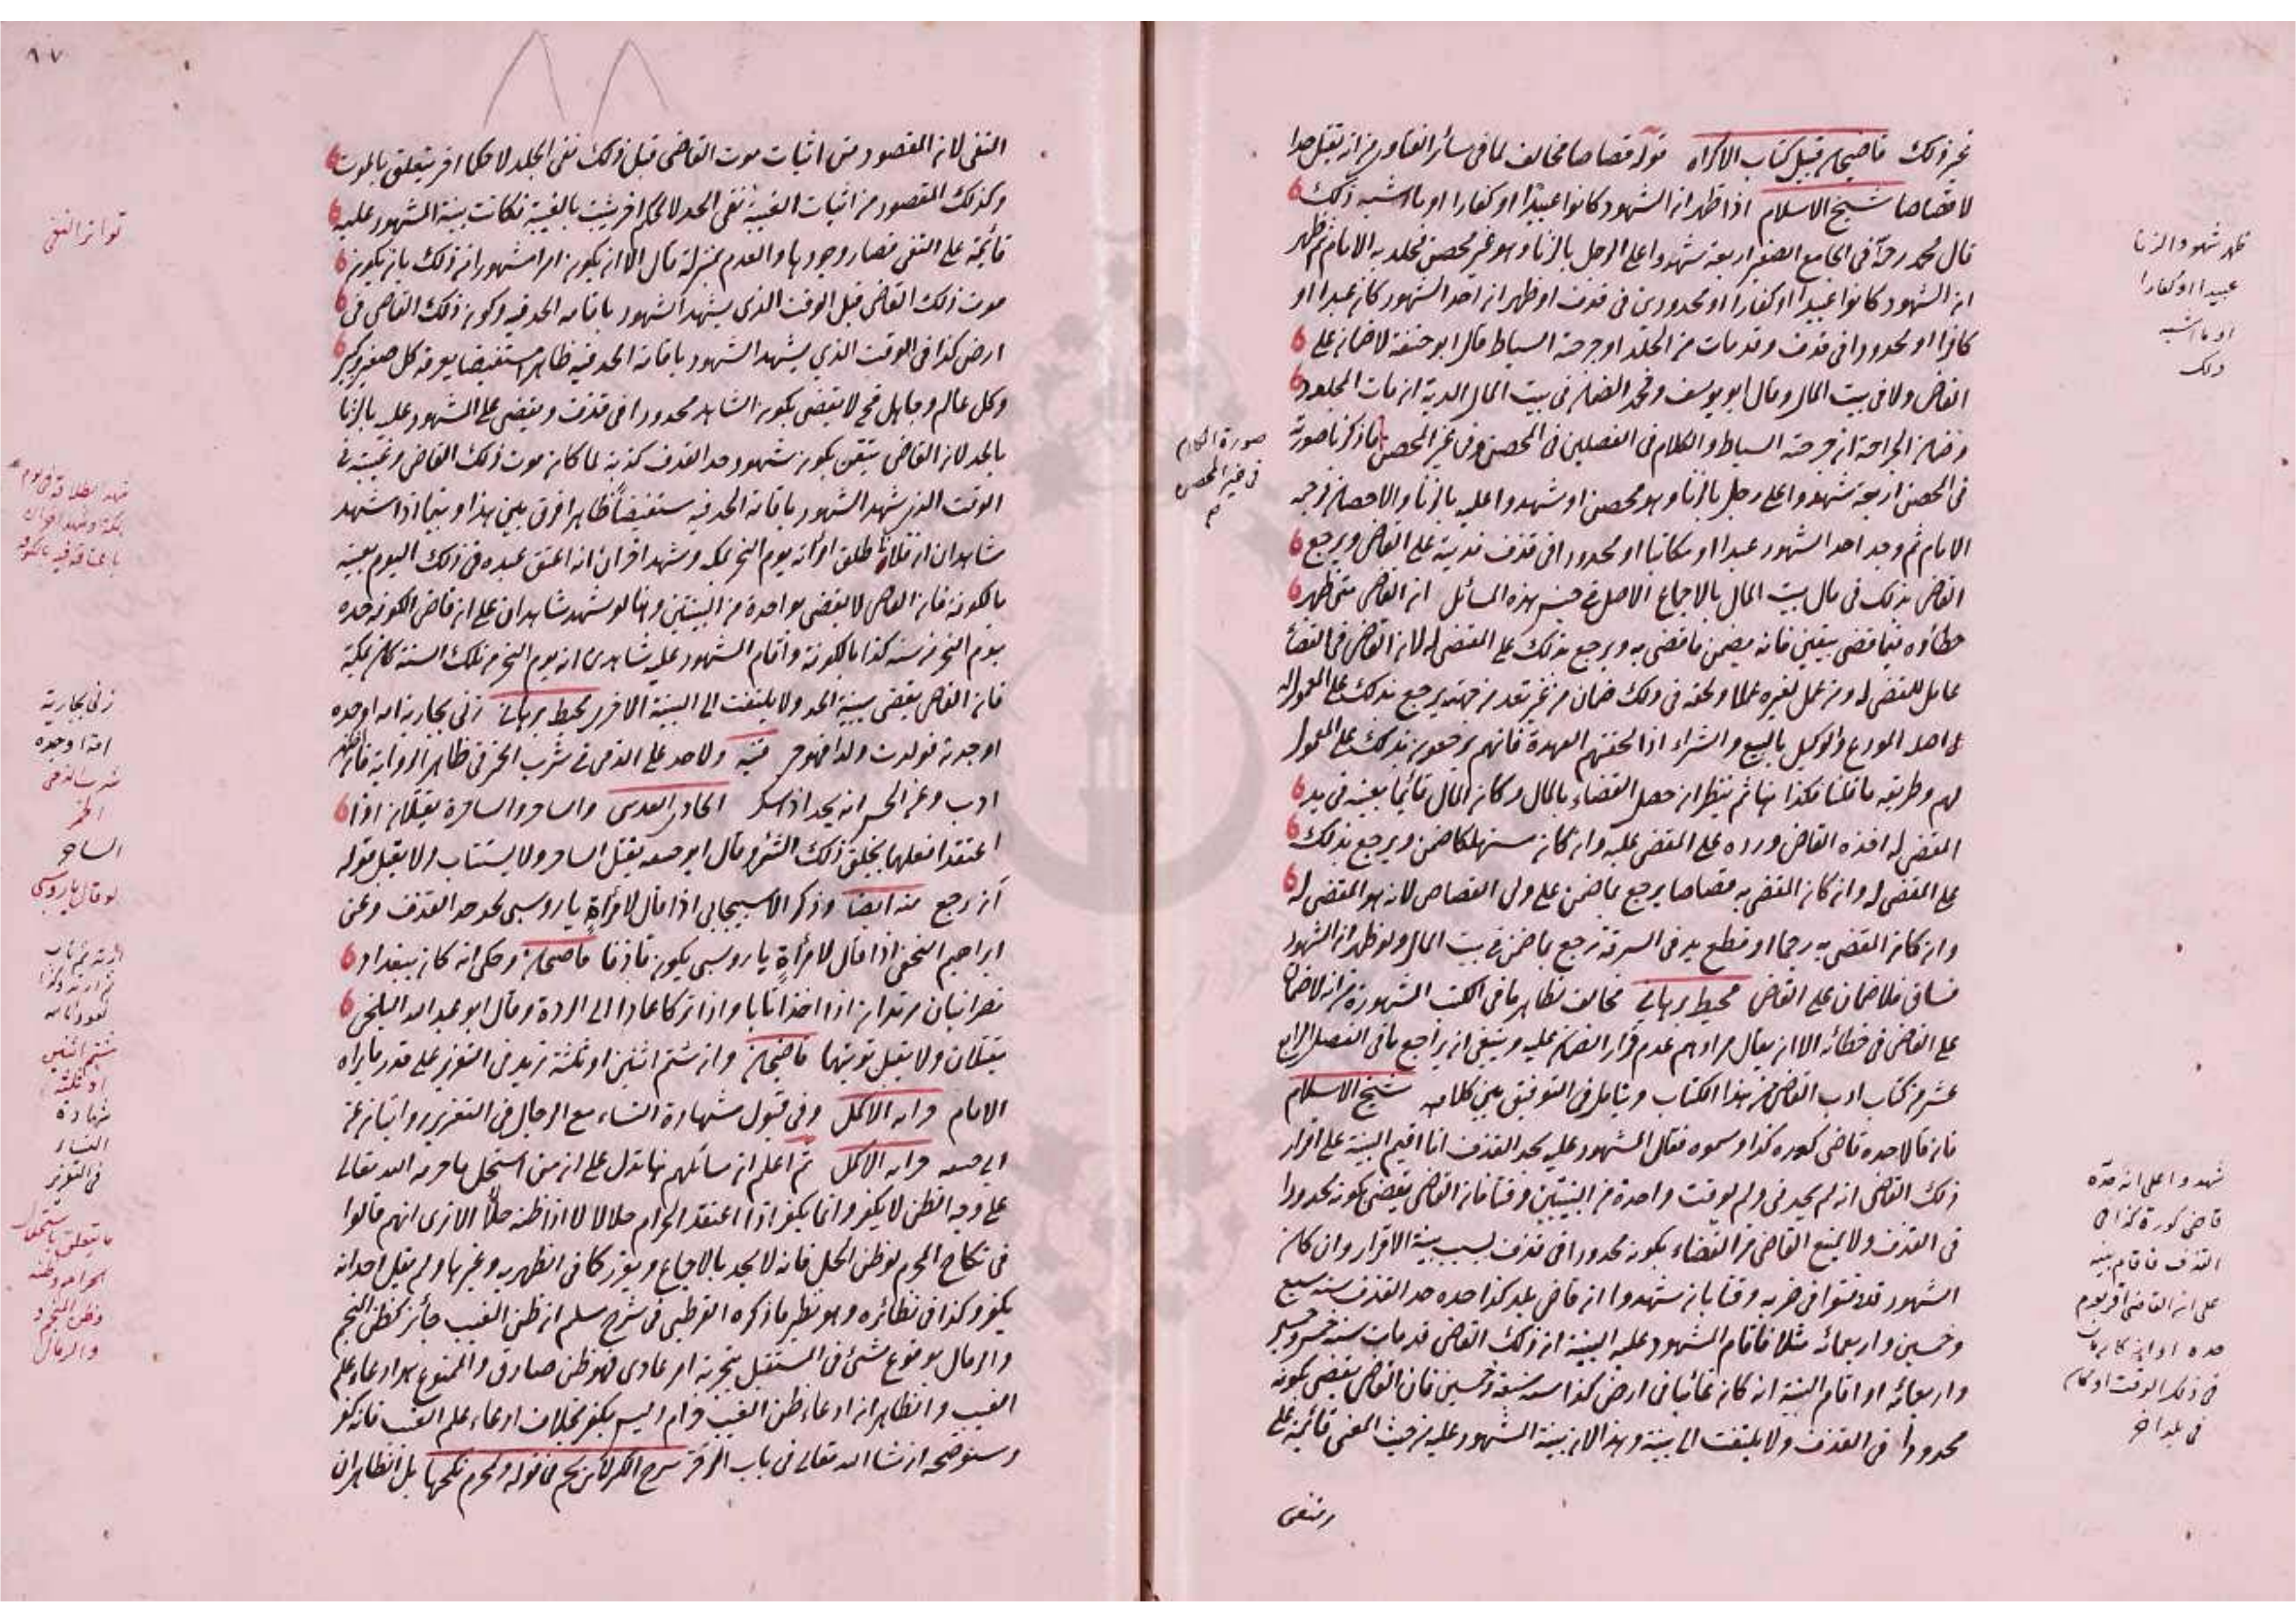 غير ذلك قاضيخان قبيل كتاب الاكراه قوله قصاصا مخالف لما في سائر الفتاوى من انه يقتل حدا
لا قصاصا شيخ الاسلام اذا ظهر ان الشهود كانوا عبيدا او كفارا او ما اشبه ذلك
قال محمد رحه في الجامع الصغير اربعة شهدوا على الرجل بالزنا وهو غير محصن فجلد به الامام ثم ظهر
ان الشهود كانوا عبيدا او كفارا او محدودين في قذف او ظهر ان احد الشهود كان عبدا او
كافرا او محدودا في قذف وقد مات من الجلد او جرحته السياط قال ابو حنيفة لا ضمان على
القاضي ولا في بيت المال وقال ابو يوسف ومحمد الضمان في بيت المال الدية ان مات المجلود
وضمان الجراحة ان جرحته السياط والكلام في الفصلين في المحصن وفي غير المحصن ما ذكرنا صورته
في المحصن اربعة شهدوا على رجل بالزنا وهو محصن او شهدوا عليه بالزنا والاحصان فرجمه
الامام ثم وجد احد الشهود عبدا او مكاتبا او محدودا في قذف فديته على القاضي ويرجع
القاضي بذلك في مال بيت المال بالاجماع الاصل في جنس هذه المسائل ان القاضي متى ظهر
خطاؤه فيما قضى بيقين فانه يضمن ما قضى به ويرجع بذلك على المقضي له لان القاضي في القضاء
عامل للمقضي له ومن عمل لغيره عملا ولحقه في ذلك ضمان من غير تعد من جهته يرجع بذلك على المعمول له
اصله المودع والوكيل بالبيع والشراء اذا لحقتهم العهدة فانهم يرجعون بذلك على المعمول
لهم وطريقه ما قلنا فكذا هنا ثم ينظر ان حصل القضاء بالمال وكان المال قائما بعينه في يد
المقضي له اخذه القاضي ورده على المقضي عليه وان كان مستهلكا ضمن ويرجع بذلك
على المقضي له وان كان المقضي به قصاصا يرجع بما ضمن على ولي القصاص لانه هو المقضي له
وان كان المقضي به رجما او قطع يد في السرقة رجع بما ضمن في بيت المال ولو ظهر ان الشهود
فساق فلا ضمان على القاضي محيط برهاني مخالف لظاهر ما في الكتب المشهورة من انه لا ضمان
على القاضي في خطائه الا ان يقال مرادهم عدم قرار الضمان عليه وينبغي ان يراجع ما في الفصل الرابع
عشر من كتاب ادب القاضي من هذا الكتاب ويتامل في التوفيق بين كلاميه شيخ الاسلام
فان قالا حده قاضي كورة كذا وسموه فقال المشهود عليه بحد القذف انا اقيم البينة على اقرار
ذلك القاضي انه لم يحدني ولم يوقت واحدة من البينتين وقتا فان القاضي يقضي بكونه محدودا
في القذف ولا يمنع القاضي من القضاء بكونه محدودا في قذف بسبب بينة الاقرار وان كان
الشهود قد وقتوا في ضربه وقتا بان شهدوا ان قاضي بلد كذا حده حد القذف سنة سبع
وخمسين واربعمائة مثلا فاقام المشهود عليه البينة ان ذلك القاضي قد مات سنة خمس وخمسين
واربعمائة او اقام البينة انه كان غائبا في ارض كذا سنة سبعة وخمسين فان القاضي يقضي بكونه
محدودا في القذف ولا يلتفت الى بينة وهذا لان بينة المشهود عليه من حيث المعنى قائمة على
ظهر شهود الزنا
عبيدا او كفارا
او ما اشبه
ذلك
صورة الكلام
في غير المحصن
شهدوا على انه حده
قاضي كورة كذا في
القذف فاقام بينة
على ان القاضي اقر بعدم
حده او انه كان مات
في ذلك الوقت او كان
في بلد اخر
٨٧
النفي لان المقصود من اثبات موت القاضي قبل ذلك نفي الجلد لا حكما اخر يتعلق بالموت
وكذلك المقصود من اثبات الغيبة نفي الحد لا لحكم اخر يثبت بالغيبة فكانت بينة المشهود عليه
قائمة على النفي فصار وجودها والعدم بمنزلة قال الا ان يكون امرا مشهورا من ذلك بان يكون
موت ذلك القاضي قبل الوقت الذي يشهد الشهود باقامة الحد فيه وكون ذلك القاضي في
ارض كذا في الوقت الذي يشهد الشهود باقامة الحد فيه ظاهرا مستفيضا يعرفه كل صغير وكبير
وكل عالم وجاهل فح لا يقضي بكون الشاهد محدودا في قذف ويقضي على المشهود عليه بالزنا
بالحد لان القاضي تيقن بكون شهود حد القذف كذبة لما كان موت ذلك القاضي وغيبته في
الوقت الذي شهد الشهود باقامة الحد فيه مستفيضا ظاهرا فرق بين هذا وبينما اذا شهد
شاهدان ان فلانا طلق امراته يوم النحر بمكة وشهد اخران انه اعتق عبده في ذلك اليوم بعينه
بالكوفة فان القاضي لا يقضي بواحدة من البينتين وهنا لو شهد شاهدان على ان قاضي الكوفة حده
يوم النحر من سنة كذا بالكوفة واقام المشهود عليه شاهدين انه يوم النحر من تلك السنة كان بمكة
فان القاضي يقضي ببينة الحد ولا يلتفت الى البينة الاخرى محيط برهاني زنى بجارية امه او جده
او جدته فولدت ولدا فهو حر قنيه ولا حد على الذمي في شرب الخمر في ظاهر الرواية فان اظهر
ادب وعن الحسن انه يحد اذا سكر الحاوي القدسي والساحر والساحرة يقتلان اذا
اعتقدا فعلهما بخلق ذلك الشئ وقال ابو حنيفه يقتل الساحر ولا يستتاب ولا يقبل قوله
ان رجع منه ايضا وذكر الاسبيجابي اذا قال لامراة يا روسبي يحد حد القذف وعن
ابراهيم النخعي اذا قال لامراة يا روسبي يكون قاذفا قاضيخان وحكي انه كان ببغداد
نصرانيان مرتدان اذا اخذا تابا واذا تركا عادا الى الردة وقال ابو عبد الله البلخي
يقتلان ولا يقبل توبتهما قاضيخان وان شتم اثنين او ثلثة يزيد في التعزير على قدر ما يراه
الامام خزانه الاكمل وفي قبول شهادة النساء مع الرجال في التعزير روايتان عن
ابي حنيفه خزانه الاكمل ثم اعلم ان مسائلهم هنا تدل على ان من استحل ما حرمه الله تعالى
على وجه الظن لا يكفر وانما يكفر اذا اعتقد الحرام حلالا لا اذا ظنه حلالا الا ترى انهم قالوا
في نكاح المحرم لو ظن الحل فانه لا يحد بالاجماع ويعزر كما في الظهيريه وغيرها ولم يقل احد انه
يكفر وكذا في نظائره وهو نظير ما ذكره القرطبي في شرح مسلم ان ظن الغيب جائز كظن المنجم
والرمال بوقوع شئ في المستقبل بتجربة امر عادي فهو ظن صادق والممنوع هو ادعاء علم
الغيب والظاهر ان ادعاء ظن الغيب حرام ليس بكفر بخلاف ادعاء علم الغيب فانه كفر
وسنوضحه ان شا الله تعالى في باب الردة شرح الكنز لابن نجيم في قوله ومحرم نكحها بل الظاهر ان
تواتر النفي
زنى بجارية
امه او جده
شرب الذمي
الخمر
الساحر
لو قال يا روسبي
شتم اثنين
او ثلثة
شهادة
النساء
في التعزير
ما يتعلق باستحلال
الحرام وظنه
وظن المنجم
والرمال